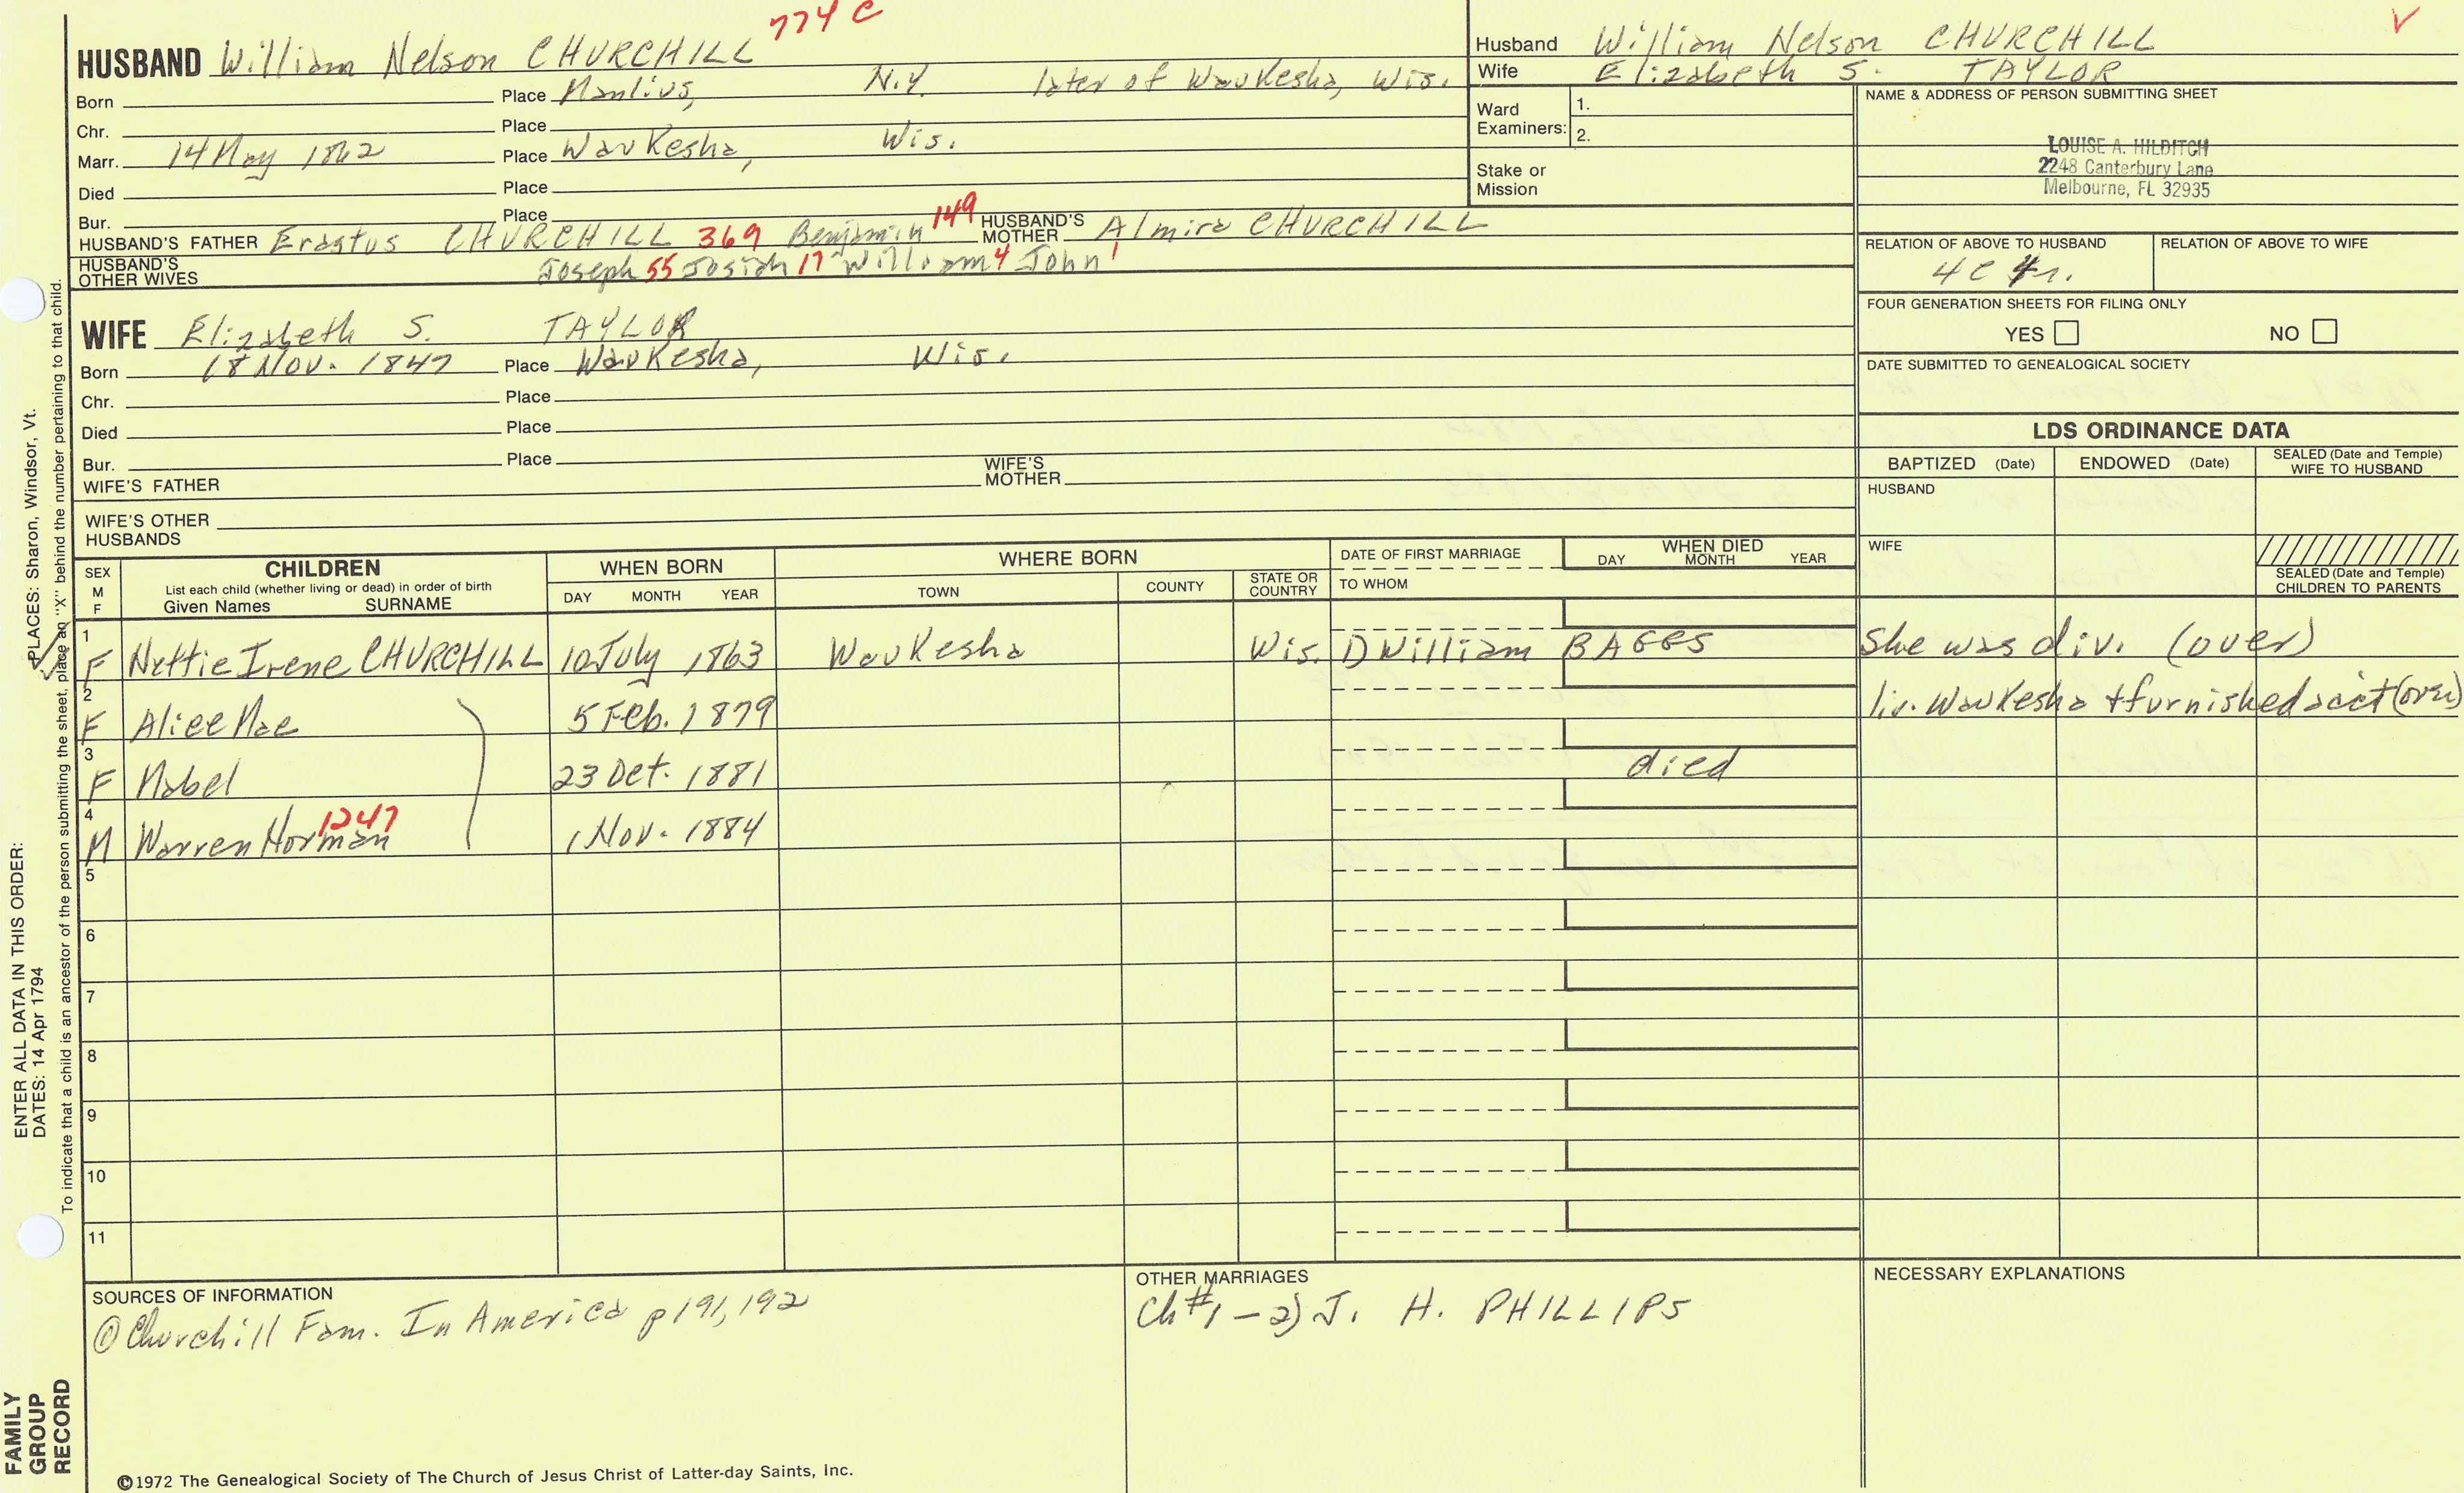 774 C
HUSBAND William Nelson CHURCHILL
Born Place Manlius, N.Y. later of Waukesha, Wis.
Chr. Place
Marr. 14 May 1862 Place Waukesha, Wis.
Died Place
Bur. Place
HUSBAND'S FATHER Erastus CHURCHILL 369 Benjamin 149 HUSBAND'S MOTHER Almira CHURCHILL
HUSBAND'S OTHER WIVES Joseph 55 Josiah 17 William 4 John 1
WIFE Elizabeth S. TAYLOR
Born 18 Nov. 1847 Place Waukesha, Wis.
Chr. Place
Died Place
Bur. Place
WIFE'S FATHER WIFE'S MOTHER
WIFE'S OTHER HUSBANDS
Husband William Nelson CHURCHILL
Wife Elizabeth S. TAYLOR
Ward Examiners: 1.
2.
Stake or Mission
NAME & ADDRESS OF PERSON SUBMITTING SHEET
LOUISE A. HILDITCH
2248 Canterbury Lane
Melbourne, FL 32935
RELATION OF ABOVE TO HUSBAND RELATION OF ABOVE TO WIFE
4C 4r.
FOUR GENERATION SHEETS FOR FILING ONLY
YES NO
DATE SUBMITTED TO GENEALOGICAL SOCIETY
LDS ORDINANCE DATA
BAPTIZED (Date) ENDOWED (Date) SEALED (Date and Temple) WIFE TO HUSBAND
HUSBAND
WIFE
SEALED (Date and Temple) CHILDREN TO PARENTS
SEX M F CHILDREN List each child (whether living or dead) in order of birth Given Names SURNAME
WHEN BORN DAY MONTH YEAR
WHERE BORN TOWN COUNTY STATE OR COUNTRY
DATE OF FIRST MARRIAGE TO WHOM
WHEN DIED DAY MONTH YEAR
1 F Nettie Irene CHURCHILL 10 July 1863 Waukesha Wis. 1) William BAGGS She was div. (over)
2 F Alice Mae 5 Feb. 1879 liv. Waukesha + furnished acct (over)
3 F Mabel 23 Oct. 1881 died
4 M Warren Horman 1247 1 Nov. 1884
5
6
7
8
9
10
11
SOURCES OF INFORMATION
① Churchill Fam. In America p 191, 192
OTHER MARRIAGES
Ch #1 - 2) J. H. PHILLIPS
NECESSARY EXPLANATIONS
©1972 The Genealogical Society of The Church of Jesus Christ of Latter-day Saints, Inc.
FAMILY GROUP RECORD
ENTER ALL DATA IN THIS ORDER:
DATES: 14 Apr 1794 PLACES: Sharon, Windsor, Vt.
To indicate that a child is an ancestor of the person submitting the sheet, place an "X" behind the number pertaining to that child.